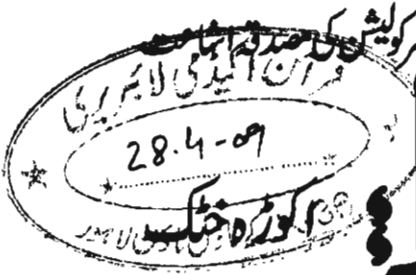 سرکولیشن کی مصدقہ اشاعت
قرآن اکیڈمی لائبریری
28.4-09
اکوڑہ خٹک
لاہور